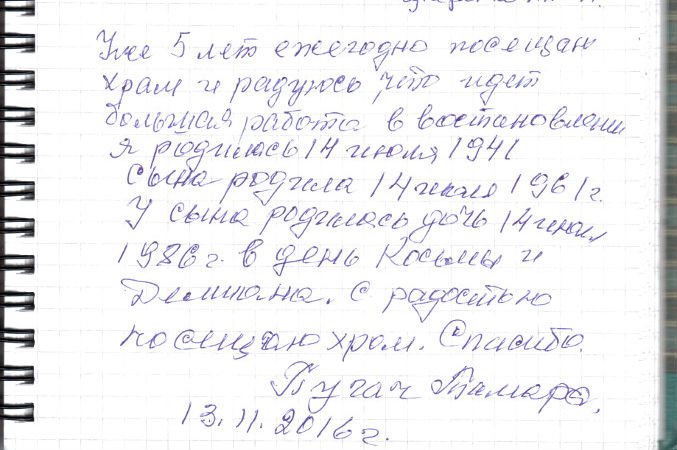 Уже 5 лет ежегодно посещаю
храм и радуюсь, что идет
большая работа в востановлении
я родилась 14 июля 1941
Сына родила 14 июля 1961 г.
У сына родилась дочь 14 июля
1986 г. в день Косьмы и
Демиана. С радостью
посещаю храм. Спасибо.
Пугач Тамара.
13.11.2016 г.